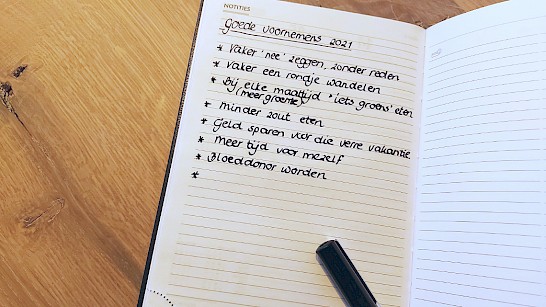 NOTITIES
Goede voornemens 2021
* Vaker 'nee' zeggen, zonder reden
* Vaker een rondje wandelen
* Bij elke maaltijd 'iets groens' eten
(meer groente)
* Minder zout eten
* Geld sparen voor die verre vakantie
* Meer tijd voor mezelf
* Bloeddonor worden
*